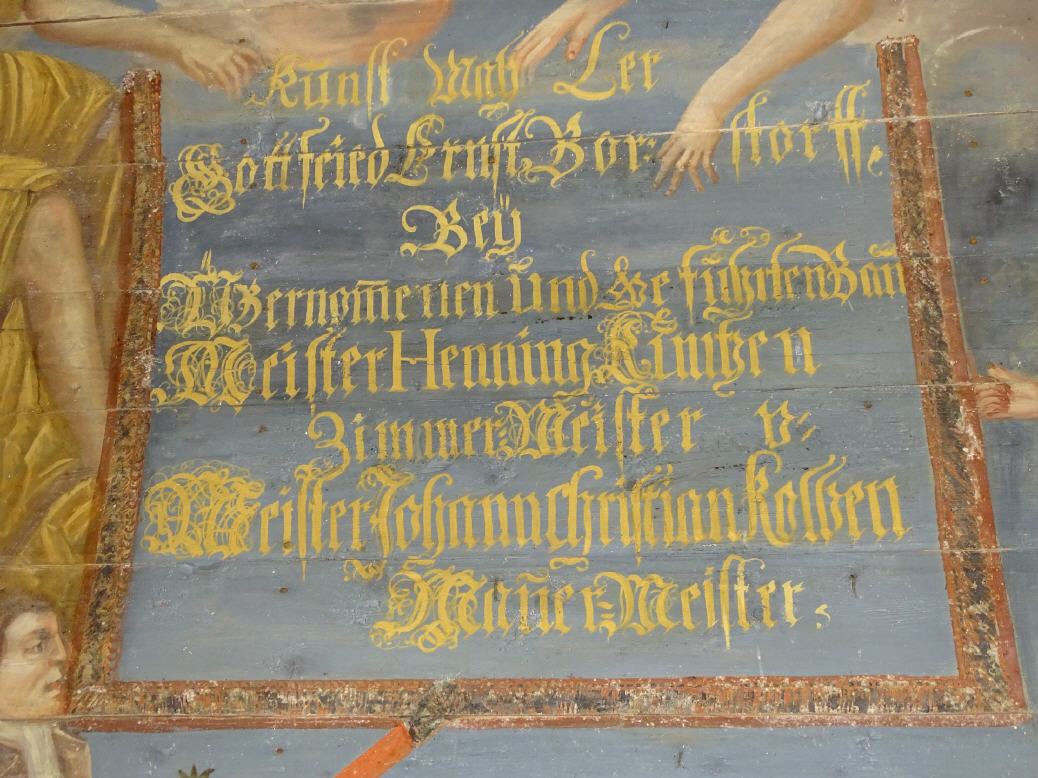 Künst Mah Ler
Gottfried Ernst Bor- storff,
Beÿ
Vbernom̄enen und Geführten Baū
Meister Henning Cuntzen
Zimmer-Meister v:
Meister Johann Christian Kolben
Maūer-Meister,